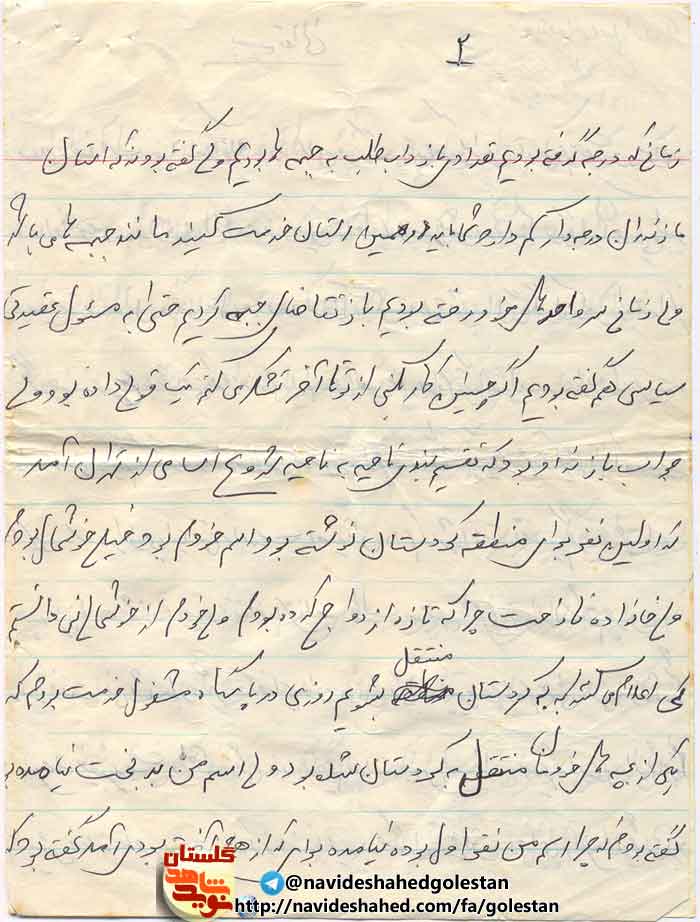 ۲
زمانی که درجه گرفته بودیم تعدادی باز داب طلب به جبهه ها بودیم ولی گفته بودند که استان
مازندران درجه دار کم دارد شما باید در همین استان خدمت کنید مانند جبهه ها می باشد
ولی زمانی در واحد های خود رفته بودیم باز تقاضای جبهه کردیم حتی به مسئول عقیدتی
سیاسی هم گفته بودیم اگر چنین کار بکنی از تو تا آخر تشکری یک قولی داده بود ولی
جواب باز نه او بود که تقسیم بندی ناحیه به ناحیه شروع اسامی از تهران آمد
که اولین نفر برای منطقه کردستان نوشته بود اسم خودم بود خیلی خوشحال بودم
ولی خانواده ناراحت چرا که تازه ازدواج کرده بودم ولی خودم از خوشحالی نمی دانستم
کی اعلام می کنند که به کردستان منتقل بشویم روزی در پاسگاه مشغول خدمت بودم که
یکی از بچه های خودمان منتقل به کردستان شده بود ولی اسم من بدبخت نیامده بود
گفته بودم که چرا اسم من نفر اول بوده نیامده برای که از بودی آمد گفته بود که
گلستان
نوید شاهد
@navideshahedgolestan
http://navideshahed.com/fa/golestan